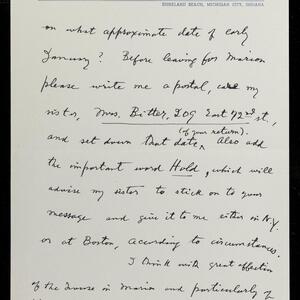 SHORELAND BEACH, MICHIGAN CITY, INDIANA
on what approximate date of early
January? Before leaving for Marion
please write me a postal, my
sister, Mrs. Bitter, 209 East 72nd st.,
(of your return).
and set down that date. Also add
the important word Hold, which will
advise my sister to stick on to your
message and give it to me either in N.Y.
or at Boston, according to circumstances.
I think with great affection
of the in Marion and particularly of